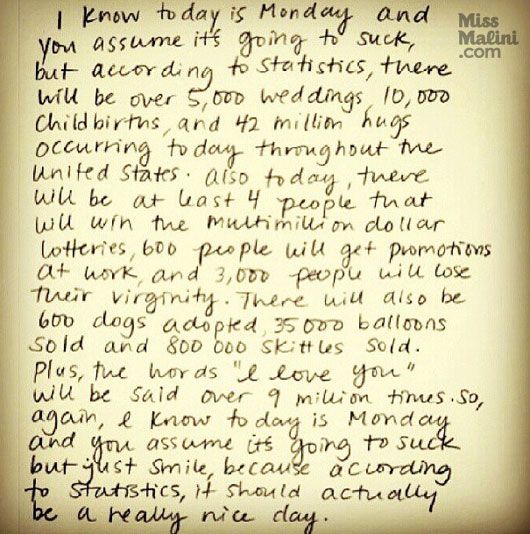 I know today is Monday and
you assume it's going to suck,
but according to statistics, there
will be over 5,000 weddings, 10,000
childbirths, and 42 million hugs
occurring today throughout the
United States. Also today, there
will be at least 4 people that
will win the multimillion dollar
lotteries, 600 people will get promotions
at work, and 3,000 people will lose
their virginity. There will also be
600 dogs adopted, 35000 balloons
sold and 800 000 skittles sold.
Plus, the words "I love you"
will be said over 9 million times. So,
again, I know today is Monday
and you assume its going to suck
but just smile, because according
to statistics, it should actually
be a really nice day.
Miss
Malini
.com